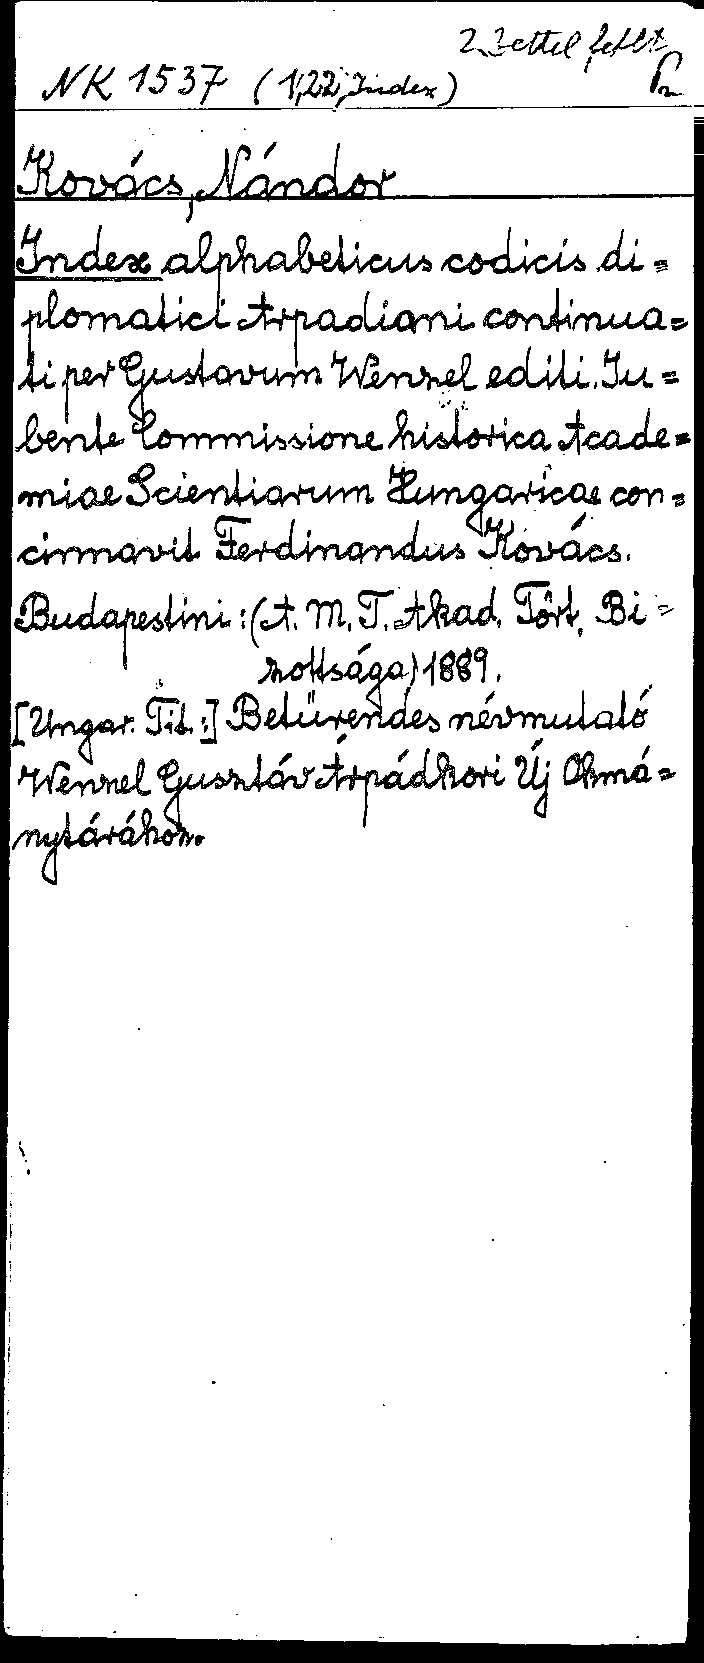 2. Zettel fehlt
NK 1537 (1,22, Index)
Kovács, Nándor
Index alphabeticus codicis di=
plomatici Arpadiani continua=
ti per Gustavum Wenzel editi. Ju=
bente Commissione historica Acade=
miae Scientiarum Hungaricae con=
cinnavit Ferdinandus Kovács.
Budapestini: (A. M. T. Akad. Tört. Bi=
zottsága) 1889.
[Ungar. Tit.:] Betürendes névmutató
Wenzel Gusztáv Árpádkori Új Okmá=
nytárához.